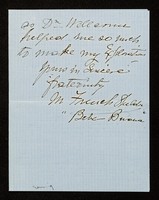 as Dr Wellcome
helped me so much
to make my Exploration
Yours in Sincere
fraternity
M. French Sheldon
"Bebe Bwana"